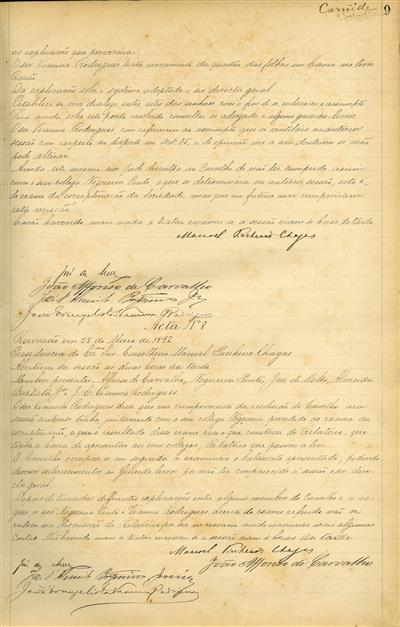 Carnide
9
as explicações que procurava.
O snr Vianna Rodrigues trata novamente da questão das folhas em branco no livro
Razão
Da explicações sobre o systema adoptado o snr director geral
Estabelece-se um dialogo entre estes dois senhores com o fim de a esclarecer o assumpto
sobre este ponto resolvido consultar o advogado e alguns guarda livros.
O snr Vianna Rodrigues com referencia ao assumpto que se ventilara na anterior
sessão com respeito ao disposto no Art. 35, é de opinião que a sua doutrina se não
pode alterar.
este mesmo snr. pede desculpa ao Conselho de não ter cumprido assim
como o seu collega Nogueira Pinto o que se determinara na anterior sessão, isto é,
do exame da escripturação da Sociedade, mas que no futuro mez cumpririam
esta missão.
E não havendo mais nada a tratar encerrou-se a sessão eram 4 horas da tarde.
Manoel Pinheiro Chagas
João Affonso de Carvalho
João Evangelista Vianna Rodrigues
Acta Nº 8
Reunião em 28 de Maio de 1892
Presidencia do Exmo Snr Conselheiro Manoel Pinheiro Chagas
Abertura da sessão ás duas horas da tarde
Membros presentes Affonso de Carvalho, Nogueira Pinto, Jose de Mello, Almeida
Baptista, J. E. Vianna Rodrigues
O snr Vianna Rodrigues disse que em cumprimento da resolução do Conselho na
sessão anterior tinha, juntamente com o seu collega Nogueira procedido ao exame da
escripturação, e que o resultado desse exame era o que constava do Relatorio, que
tinha a honra de apresentar aos seus collegas, Relatorio que passou a ler.
O Conselho em seguida a examinar o balancete apresentado, pedindo
diversos esclarecimentos ao Guarda livros, por não ter comparecido á sessão o snr director
geral.
trocadas differentes explicações entre alguns membros do Conselho e os vogaes
o snr Nogueira Pinto e Vianna Rodrigues ácerca do exame referido não se
entrou na discussão do Relatorio por ser necessario ainda examinar mais algumas
contas. Não havendo mais a tratar encerrou-se a sessão eram 4 horas da tarde.
Manoel Pinheiro Chagas
João Affonso de Carvalho
João Evangelista Vianna Rodrigues